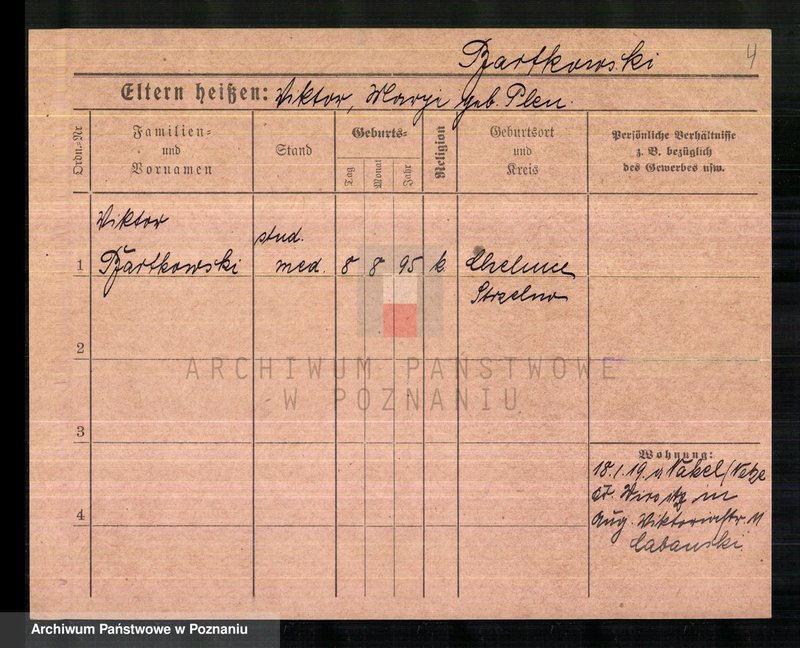 Bartkowski
4
Eltern heißen: Viktor, Marye geb. Plen.
Ordn.-Nr
Familien-
und
Vornamen
Stand
Geburts-
Tag
Monat
Jahr
Religion
Geburtsort
und
Kreis
Persönliche Verhältnisse
z. B. bezüglich
des Gewerbes usw.
Viktor
stud.
1 Bartkowski med. 8 8 95 k. Chelmce
Strzelno
2
ARCHIWUM PAŃSTWOWE
W POZNANIU
3
Wohnung:
18.1.19. v Nakel/Netze
in
4
Aug. Viktoriastr. 11
Labanski
Archiwum Państwowe w Poznaniu